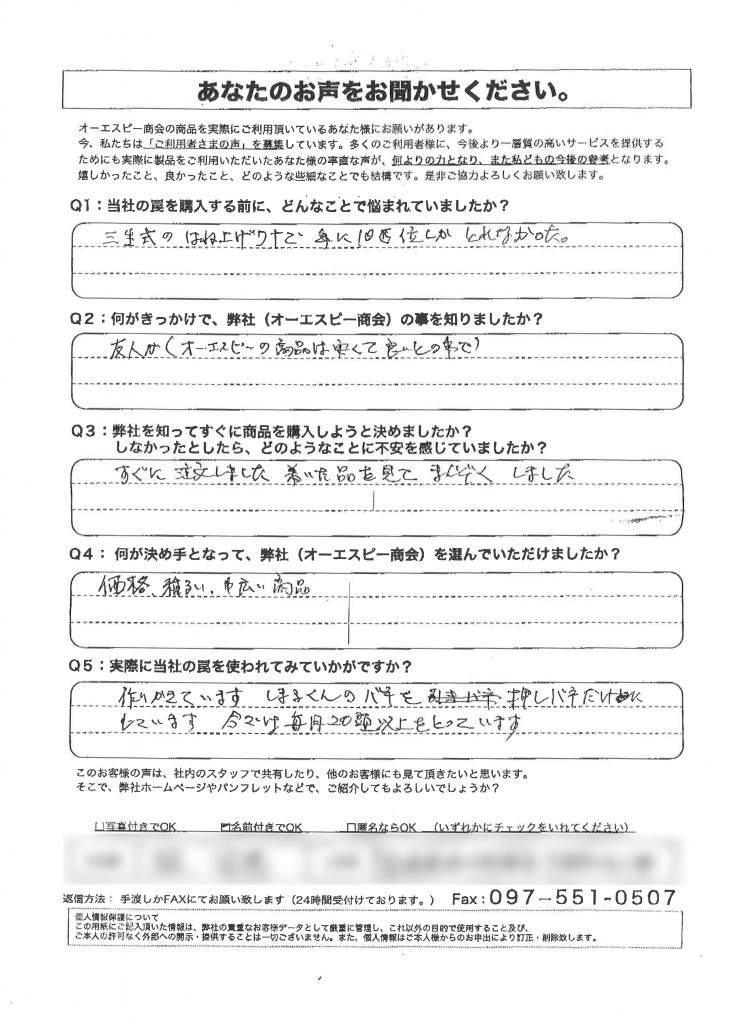 あなたのお声をお聞かせください。
オーエスピー商会の商品を実際にご利用頂いているあなた様にお願いがあります。
今、私たちは「ご利用者さまの声」を募集しています。多くのご利用者様に、今後より一層質の高いサービスを提供する
ためにも実際に製品をご利用いただいたあなた様の率直な声が、何よりの力となり、また私どもの今後の
となります。
嬉しかったこと、良かったこと、どのような些細なことでも結構です。是非ご協力よろしくお願い致します。
Q1：当社の罠を購入する前に、どんなことで悩まれていましたか？
はね上げワナで 年に10匹位しか とれなかった。
Q2：何がきっかけで、弊社（オーエスピー商会）の事を知りましたか？
友人が（オーエスピーの商品は安くて良いとの事で）
Q3：弊社を知ってすぐに商品を購入しようと決めましたか？
しなかったとしたら、どのようなことに不安を感じていましたか？
すぐに 注文しました 着いた品を見て まんぞく しました
Q4： 何が決め手となって、弊社（オーエスピー商会）を選んでいただけましたか？
価格、種るい、巾広い商品
Q5：実際に当社の罠を使われてみていかがですか？
作りかえています しまるくんのバネを 押しバネだけに
しています 今では毎月20頭以上をとっています
このお客様の声は、社内のスタッフで共有したり、他のお客様にも見て頂きたいと思います。
そこで、弊社ホームページやパンフレットなどで、ご紹介してもよろしいでしょうか？
□写真付きでOK ☑名前付きでOK □匿名ならOK （いずれかにチェックをいれてください）
返信方法： 手渡しかFAXにてお願い致します（24時間受付けております。） Fax：097-551-0507
個人情報保護について
この用紙にご記入頂いた情報は、弊社の貴重なお客様データとして厳重に管理し、これ以外の目的で使用すること及び、
ご本人の許可なく外部への開示・提供することは一切ございません。また、個人情報はご本人様からのお申出により訂正・削除致します。